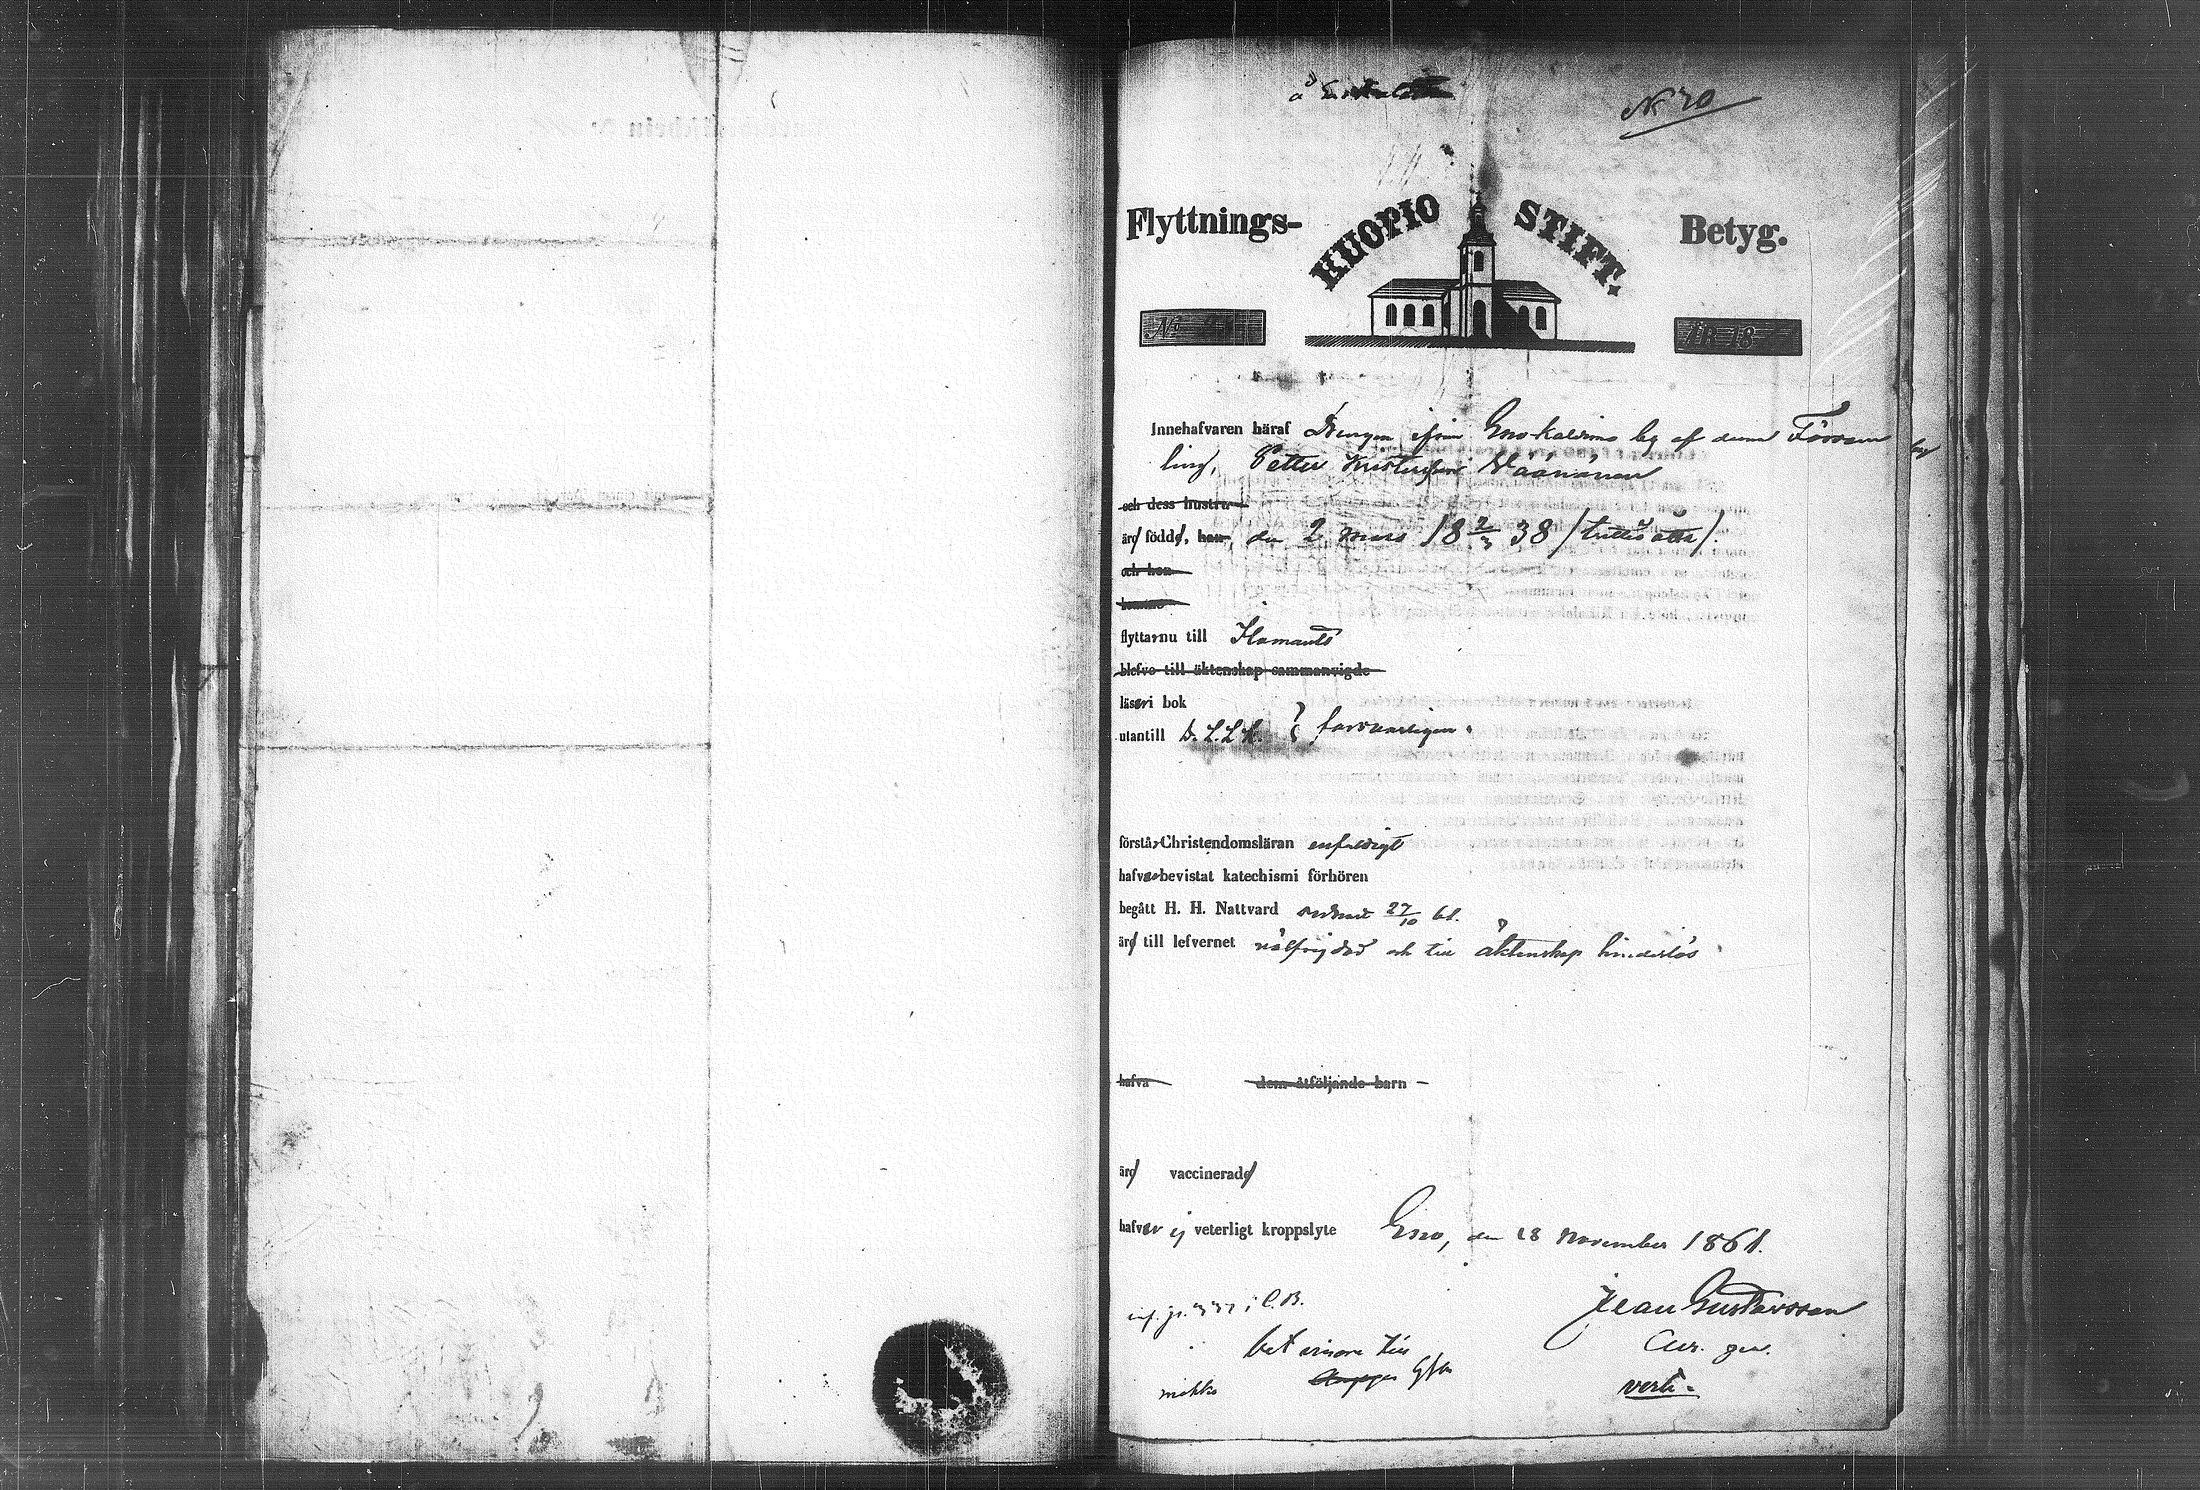 N 70
Flyttnings- KUOPIO STIFT. Betyg.
No
ÅR 18
Innehafvaren häraf Drengen ifrån Eno kaldime by af denna Församling,
Petter Väänänen
och dess hustru
äro födde, han den 2 Mars 18 2/3 38 (trettio åtta).
och hon
flytta nu till Ilomants
blefvo till äktenskap sammanvigde
läsa i bok
utantill D. L. L. } försvarligen.
förstår Christendomsläran enfaldigt
hafva bevistat katechismi förhören
begått H. H. Nattvard senast 27/10 61.
äro till lefvernet välfrejdad och till äktenskap hinderlös
hafva dem åtföljande barn
äro vaccinerade
hafva ej veterligt kroppslyte Eno, den 28 November 1861.
i C. B.
Jean Gustavsson
verte